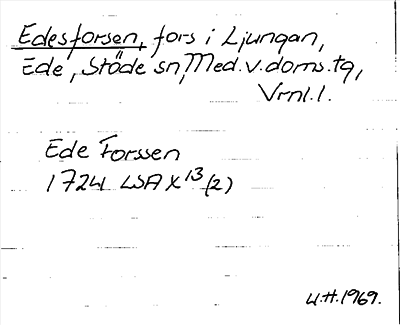 Edesforsen, fors i Ljungan,
Ede, Stöde sn, Med. v. doms. tg,
Vrnl. l.
Ede Forssen
1724 LSA X 13 (2)
U.H. 1969.